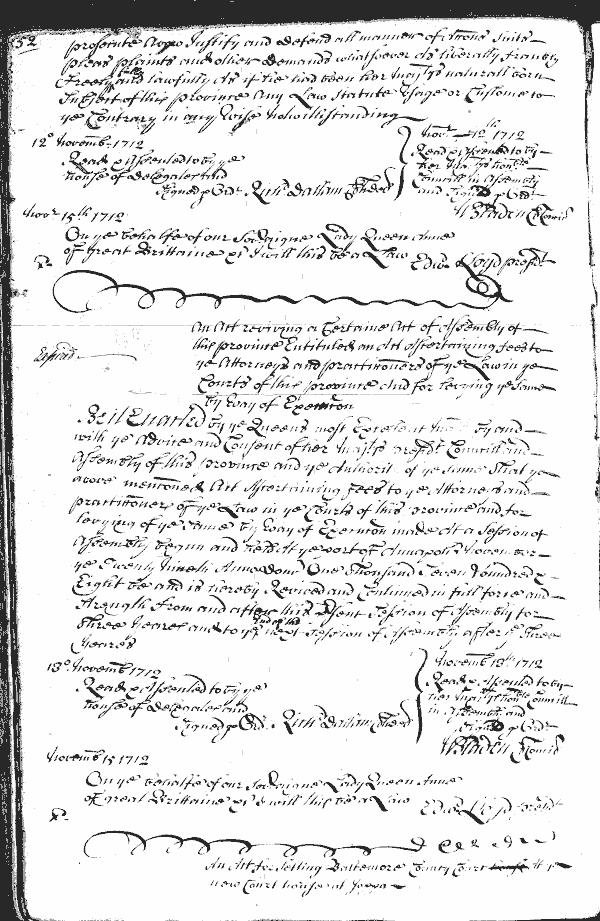 52
prosecute Answ Justify and defend all manner of Accons Suits
pleas plaints and other demands whatsoever As liberally frankly
freely and lawfully As if he had been her Majtys naturall born
Subject of this province Any Law Statute Usage or Custome to
ye Contrary in any wise notwithstanding
12º Novemb 1712
Read & Assented to by ye
house of delegates and
Signed p Ordr Richd Dallam Cl hs del
Novr 12th 1712
Read & Assented to by
her Majtys honble
Councill in Assembly
and Signed p Ordr
W Bladen Cl Concil
Novr 15th 1712
On ye behalfe of our Sovraigne Lady Queen Anne
of great Brittaine &c I will this be a Law
Edwd Lloyd presidt
An Act reviving a Certaine Act of Assembly of
this province Entituled an Act Ascertaining fees to
ye Attorneys and practitioners of ye Law in ye
Courts of this province And for levying ye same
by way of Execution
Be it Enacted by ye Queens most Excelent by and
with ye Advice and Consent of her Majtys presidt Councill and
Assembly of this province and ye Authority of ye Same That ye
above mentioned Act Ascertaining fees to ye Attorneys and
practitioners of ye Law in ye Courts of this province and for
levying of ye same by way of Execution made At a Session of
Assembly begun and held At ye port of Annapolis November
ye Twenty Nineth Anno dom One thousand Seven hundred &
Eight be and is hereby Revived and Continued in full force and
Strength from and after this psent Session of Assembly for
three yeares and to ye End of the next Session of Assembly after ye three
yeares
13º Novemb 1712
Read & Assented to by ye
house of delegates and
Signed p Ordr Richd Dallam Cl hs del
Novemb 13th 1712
Read & Assented to by
her Majtys honble Councill
in Assembly and
Signed p Ordr
W Bladen Cl Concil
Novemb 15 1712
On ye behalfe of our Sovraigne Lady Queen Anne
of great Brittaine &c I will this be a Law
Edwd Lloyd presidt
An Act for Setling Baltemore County Court At ye
new Court house at Joppa